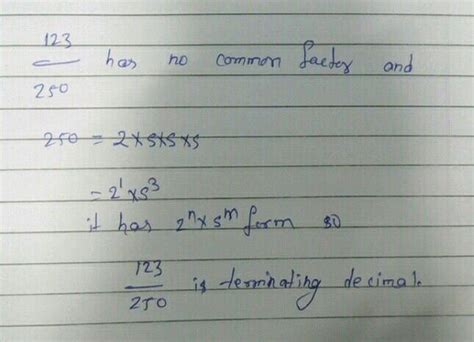 123/250 has no common factor and
250 = 2×5×5×5
= 2¹×5³
it has 2ⁿ×5ᵐ form so
123/250 is terminating decimal.